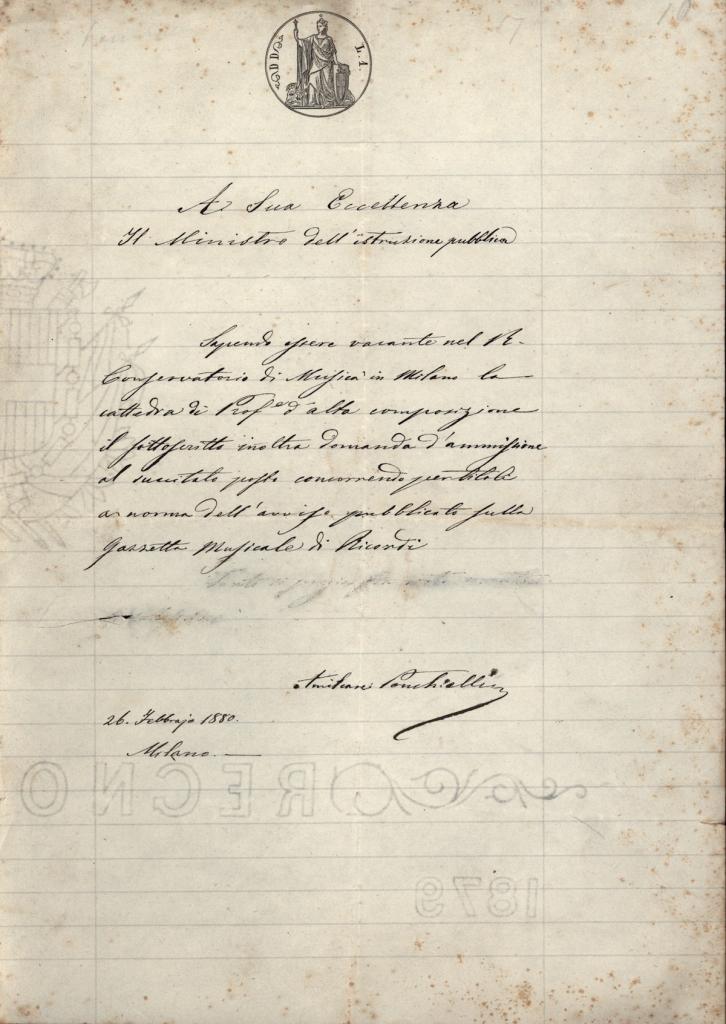 DD L. 1.
A Sua Eccellenza
Il Ministro dell'istruzione pubblica
Sapendo essere vacante nel R.
Conservatorio di Musica in Milano la
cattedra di Prof.e d'alta composizione
il sottoscritto inoltra domanda d'ammissione
al succitato posto concorrendo per titoli
a norma dell'avviso pubblicato sulla
Gazzetta Musicale di Ricordi
Amilcare Ponchielli
26. Febbrajo 1880.
Milano.
REGNO
1879